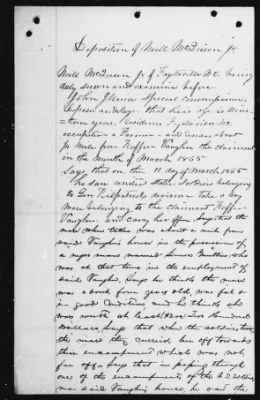 Deposition of Neill McQueen Jr
Neill McQueen Jr of Fayetteville NC being
duly sworn and examine before
John Glenn special Commissioner
deposes and says that his age is
teen years, residence Fayetteville NC
occupation a Farmer and resides about
mile from Neffer Vaughn the claimant
in the Month of March 1865
Says that on the 11 day of March 1865
he saw united States Soldiers belonging
to Gen Kilpatrick division take a bay
Mare belonging to the claimant Neffer
Vaughn and carry her off. Says that the
mare when taken was about a mile from
said Vaughn's house in the possession of
a negro man named
was at that time in the employment of
said Vaughn. Says he thinks the mare
was about four years old, was fat &
in good condition and he thinks she
was worth at least $200 Two Hundred
Dollars. Says that when the soldiers took
the mare they carried her off towards
their encampment which was not
far off. Says that in passing through
one of the encampments of the U.S. Soldiers
near said Vaughn's house, he saw the